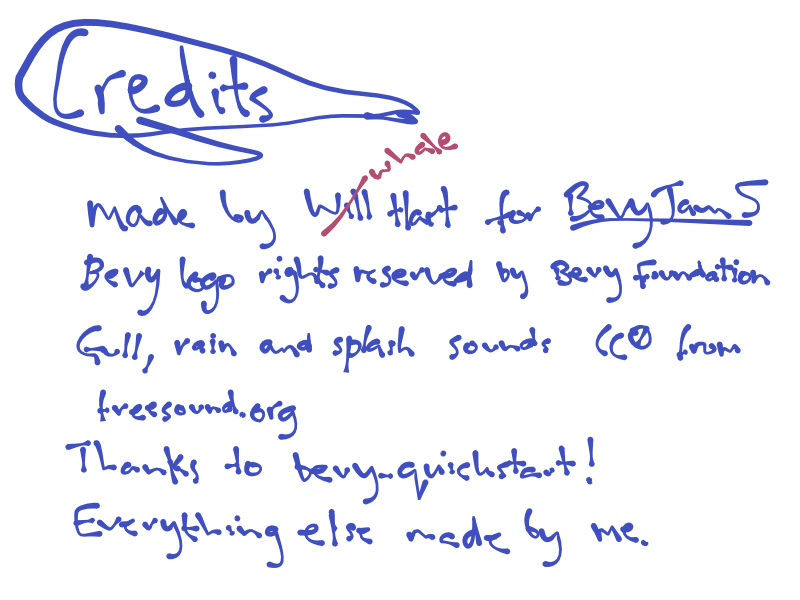 Credits
whale
made by Will Hart for Bevy Jam 5
Bevy logo rights reserved by Bevy Foundation
Gull, rain and splash sounds CC0 from
freesound.org
Thanks to bevy-quickstart!
Everything else made by me.